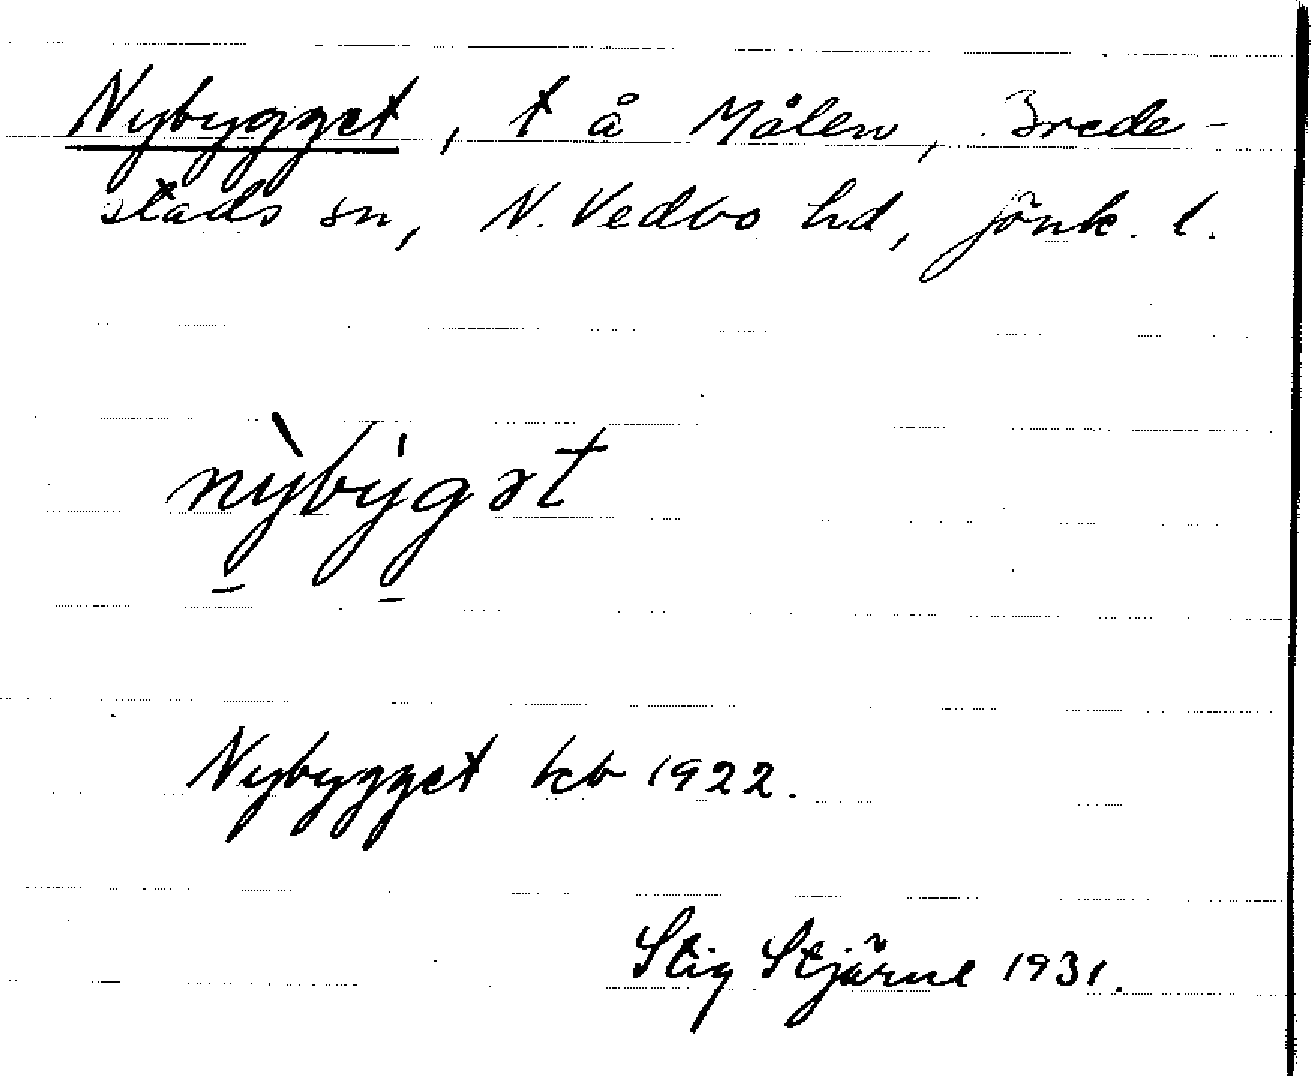 Nybygget, t å Målen, Brede-
stads sn, N. Vedbo hd, Jönk. l.
nỳbýgət
Nybygget kb 1922.
Stig Stjärne 1931.